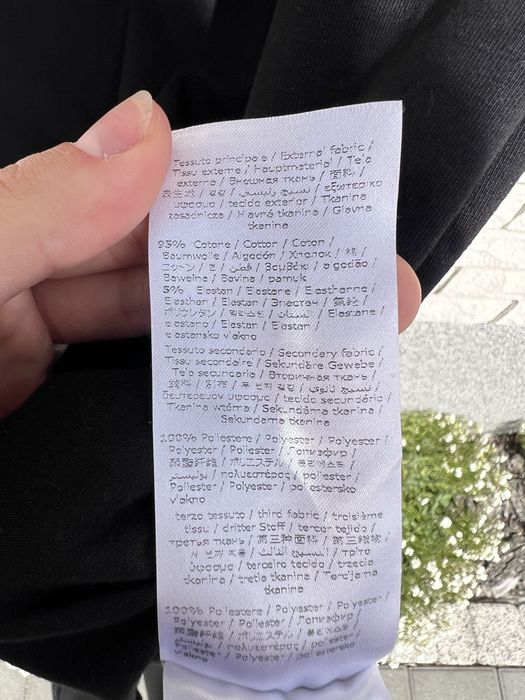 Tessuto principale / External fabric /
Tissu externe / Hauptmaterial / Tela
externa / Внешняя ткань / 面料 /
表生地 / 겉감 / نسيج رئيسي / εξωτερικό
ύφασμα / tecido exterior / Tkanina
zasadnicza / Havné tkanina / Glavna
tkanina
95% Cotone / Cotton / Coton /
Baumwolle / Algodón / Хлопок / 棉 /
コットン / 면 / قطن / βαμβάκι / algodão /
Bawełna / Bavlna / pamuk
5% Elastan / Elastane / Elasthanne /
Elasthan / Elastan / Эластан / 氨纶 /
ポリウレタン / 엘라스탄 / الستان / Elastane /
elastano / Elastan / Elastan /
elastansko vlakno
Tessuto secondario / Secondary fabric /
Tissu secondaire / Sekundäre Gewebe /
Tela secundaria / Вторичная ткань /
别布 / 두 번째 겉감 / نسيج ثانوي /
δευτερεύον ύφασμα / tecido secundério /
Tkanina wtórna / Sekundárna tkanina /
Sekundarna tkanina
100% Poliestere / Polyester / Polyester /
Polyester / Poliéster / Полиэфир /
聚酯纤维 / ポリエステル / 폴리에스터 /
بوليستر / πολυεστέρας / poliéster /
Poliester / Polyester / poliestersko
vlakno
terzo tessuto / third fabric / troisième
tissu / dritter Stoff / tercer tejido /
третья ткань / 第三种面料 / 第三織物 /
세 번째 직물 / النسيج الثالث / τρίτο
ύφασμα / terceiro tecido / trzecia
tkanina / tretia tkanina / Tercijarna
tkanina
100% Poliestere / Polyester / Polyester /
Polyester / Poliéster / Полиэфир /
聚酯纤维 / ポリエステル / 폴리에스터 /
بوليستر / πολυεστέρας / poliéster /
Poliester / Polyester / poliestersko
vlakno